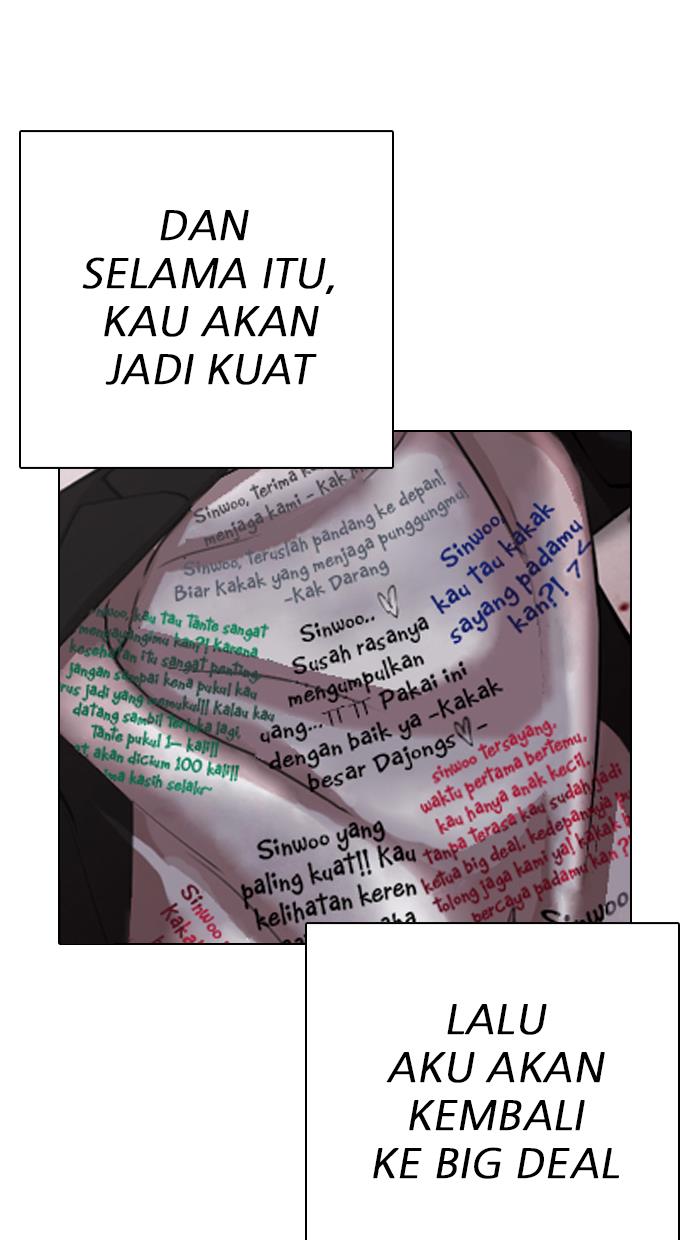 DAN
SELAMA ITU,
KAU AKAN
JADI KUAT
Sinwoo, terima
menjaga kami - Kak
Sinwoo, teruslah pandang ke depan!
Biar Kakak yang menjaga punggungmu!
-Kak Darang
Sinwoo,
kau tau kakak
sayang padamu
kan?!
kau tau Tante sangat
menyayangimu kan?! Karena
kesehatan itu sangat penting
jangan sampai kena pukul kau
rus jadi yang memukul!! Kalau kau
datang sambil terluka lagi,
Tante pukul 1- kali!!
akan dicium 100 kali!!
kasih selalu~
Sinwoo.. ♡
Susah rasanya
mengumpulkan
yang... ㅠㅠ Pakai ini
dengan baik ya -Kakak
besar Dajongs♡-
sinwoo tersayang.
waktu pertama bertemu,
kau hanya anak kecil.
tanpa terasa kau sudah jadi
ketua big deal. kedepannya
tolong jaga kami ya! kakak
percaya padamu kan
Sinwoo yang
paling kuat!! Kau
kelihatan keren
Sinwoo
LALU
AKU AKAN
KEMBALI
KE BIG DEAL